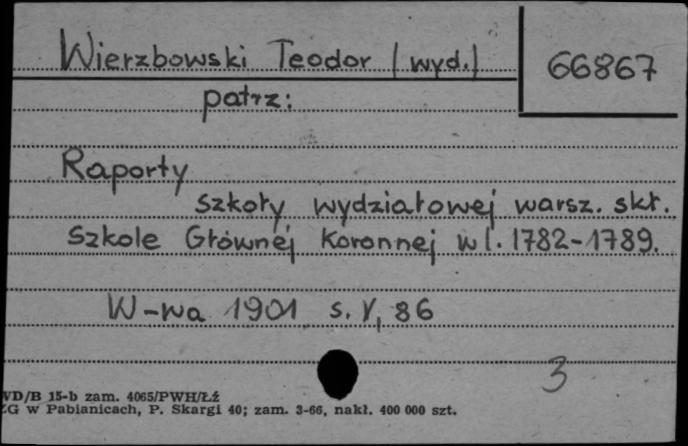 Wierzbowski Teodor (wyd.)
66867
patrz:
Raporty
szkoły wydziałowej warsz. skł.
Szkole Głównej Koronnej w l. 1782-1789.
W-wa 1901 s. V, 86
3
WD/B 15-b zam. 4065/PWH/Łź
ZG w Pabianicach, P. Skargi 40; zam. 3-66, nakł. 400 000 szt.